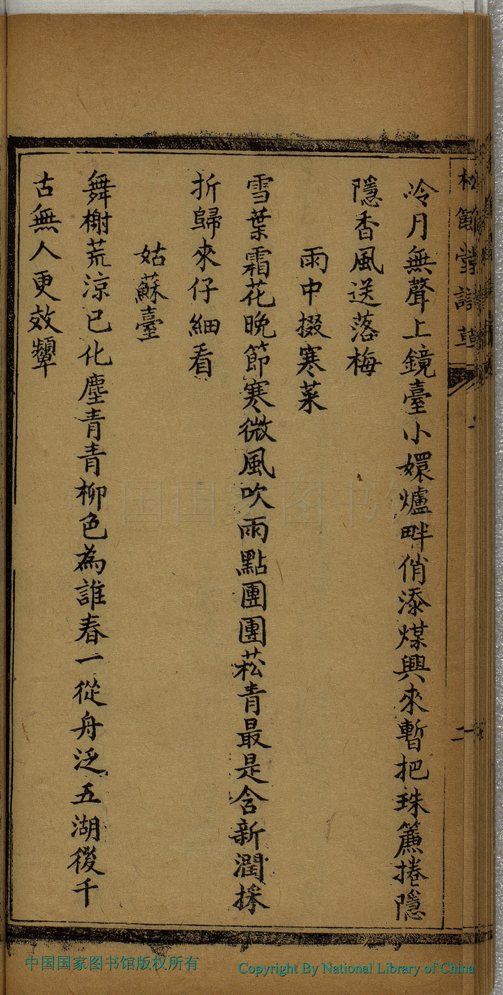 冷月無聲上鏡臺小嬛爐畔俏添煤興來暫把珠簾捲隱
隱香風送落梅
雨中掇寒菜
雪葉霜花晚節寒微風吹雨點團團菘青最是含新潤採
折歸來仔細看
姑蘇臺
舞榭荒涼已化塵青青柳色為誰春一從舟泛五湖後千
古無人更效顰
中国国家图书馆版权所有
Copyright By National Library of China